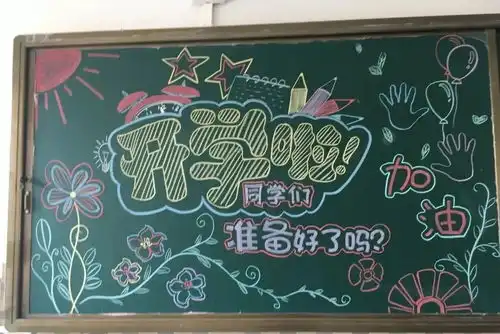 开学啦!
同学们
准备好了吗?
加
油